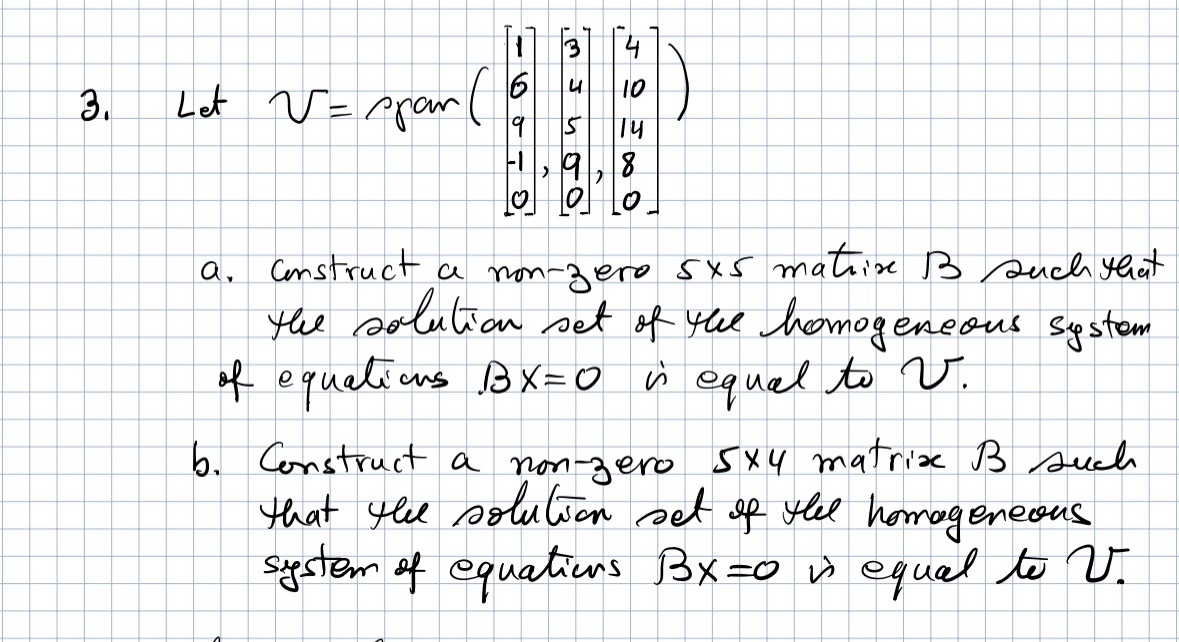 3. Let V = span ( [1 6 9 -1 0], [3 4 5 9 0], [4 10 14 8 0] )
a. Construct a non-zero 5x5 matrix B such that
the solution set of the homogeneous system
of equations BX=0 is equal to V.
b. Construct a non-zero 5x4 matrix B such
that the solution set of the homogeneous
system of equations BX=0 is equal to V.